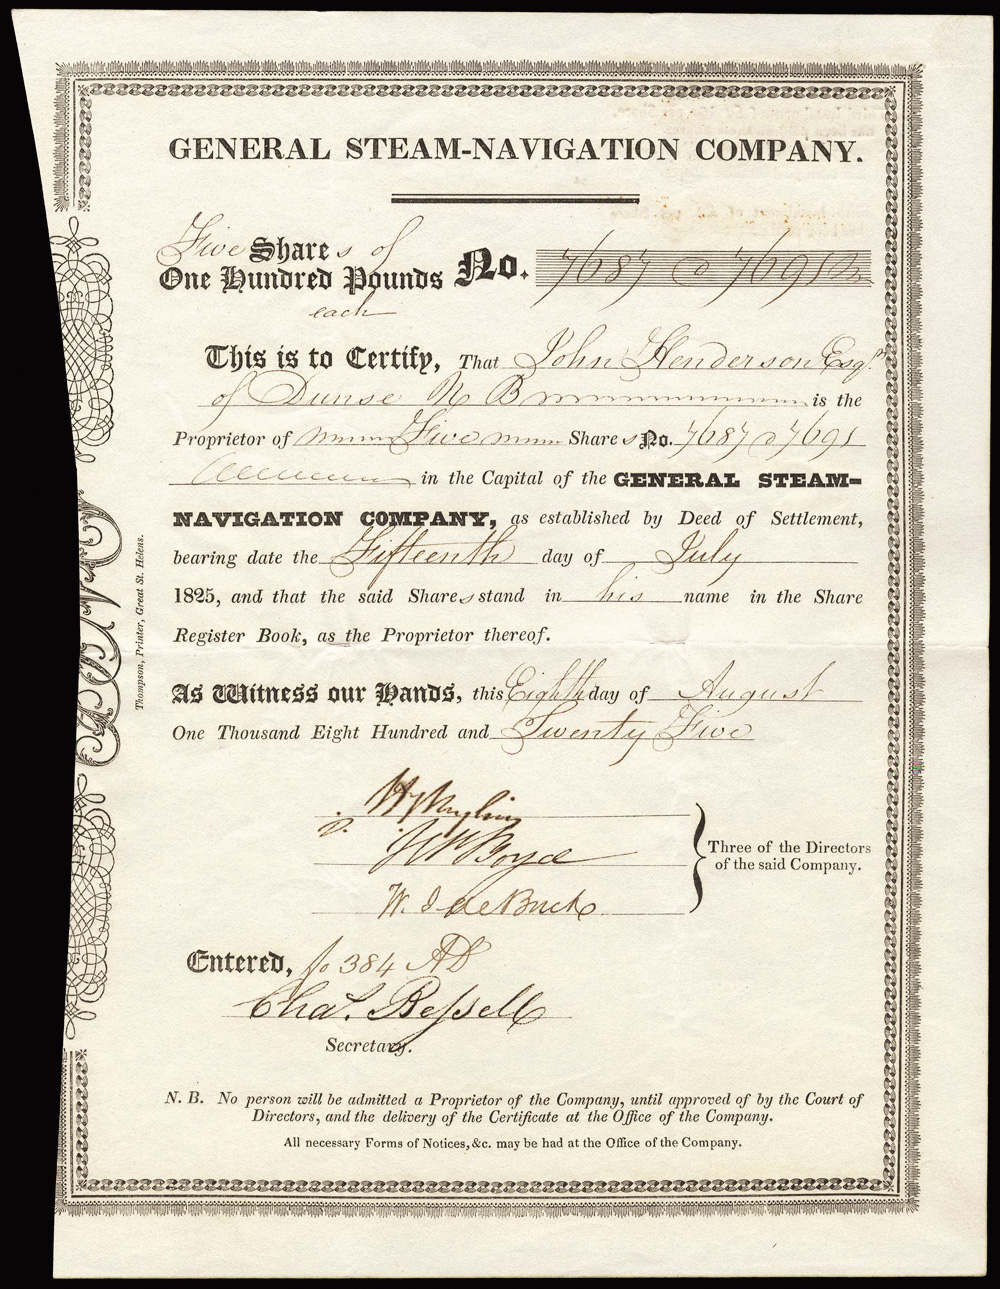 GENERAL STEAM-NAVIGATION COMPANY.
Five Shares of
One Hundred Pounds
each
No. 7687 @ 7691
This is to Certify, That John Henderson Esqr.
of Dunse N B is the
Proprietor of Five Shares No. 7687 @ 7691
in the Capital of the GENERAL STEAM-
NAVIGATION COMPANY, as established by Deed of Settlement,
bearing date the Fifteenth day of July
1825, and that the said Shares stand in his name in the Share
Register Book, as the Proprietor thereof.
As Witness our Hands, this Eighth day of August
One Thousand Eight Hundred and Twenty Five
Wm Boyd
W. J de Buck
Three of the Directors
of the said Company.
Entered, fo 384 AB
Chas. Bessell
Secretary.
N. B. No person will be admitted a Proprietor of the Company, until approved of by the Court of
Directors, and the delivery of the Certificate at the Office of the Company.
All necessary Forms of Notices, &c. may be had at the Office of the Company.
Thompson, Printer, Great St. Helens.